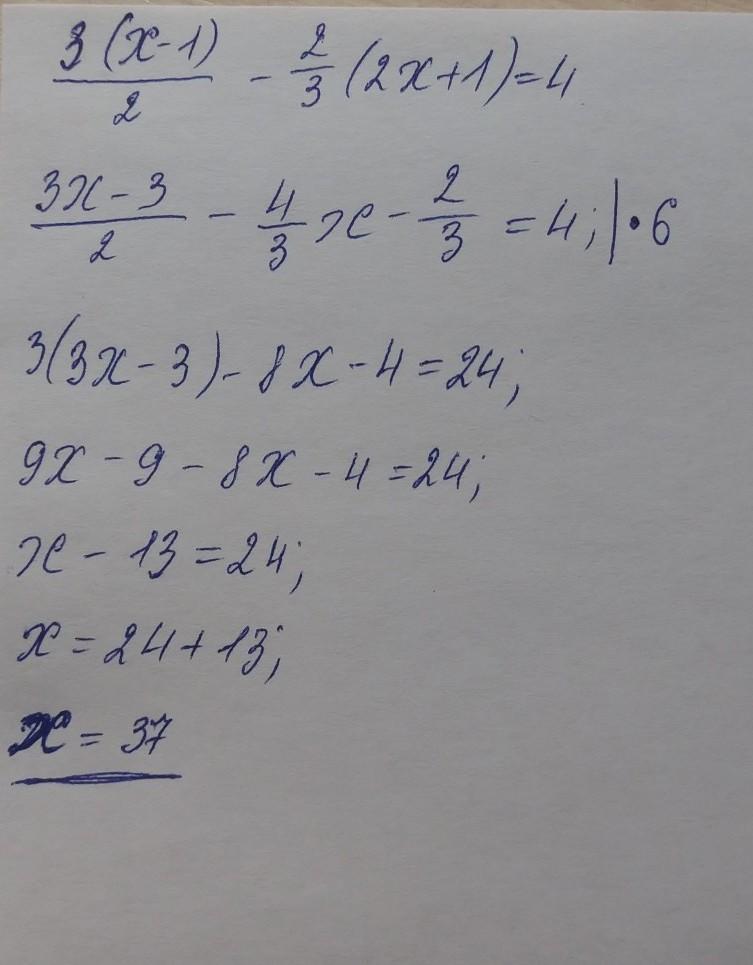 3(x-1)/2 - 2/3 (2x+1)=4
3x-3/2 - 4/3 x - 2/3 = 4; |•6
3(3x-3)-8x-4=24;
9x-9-8x-4=24;
x-13=24;
x=24+13;
x=37